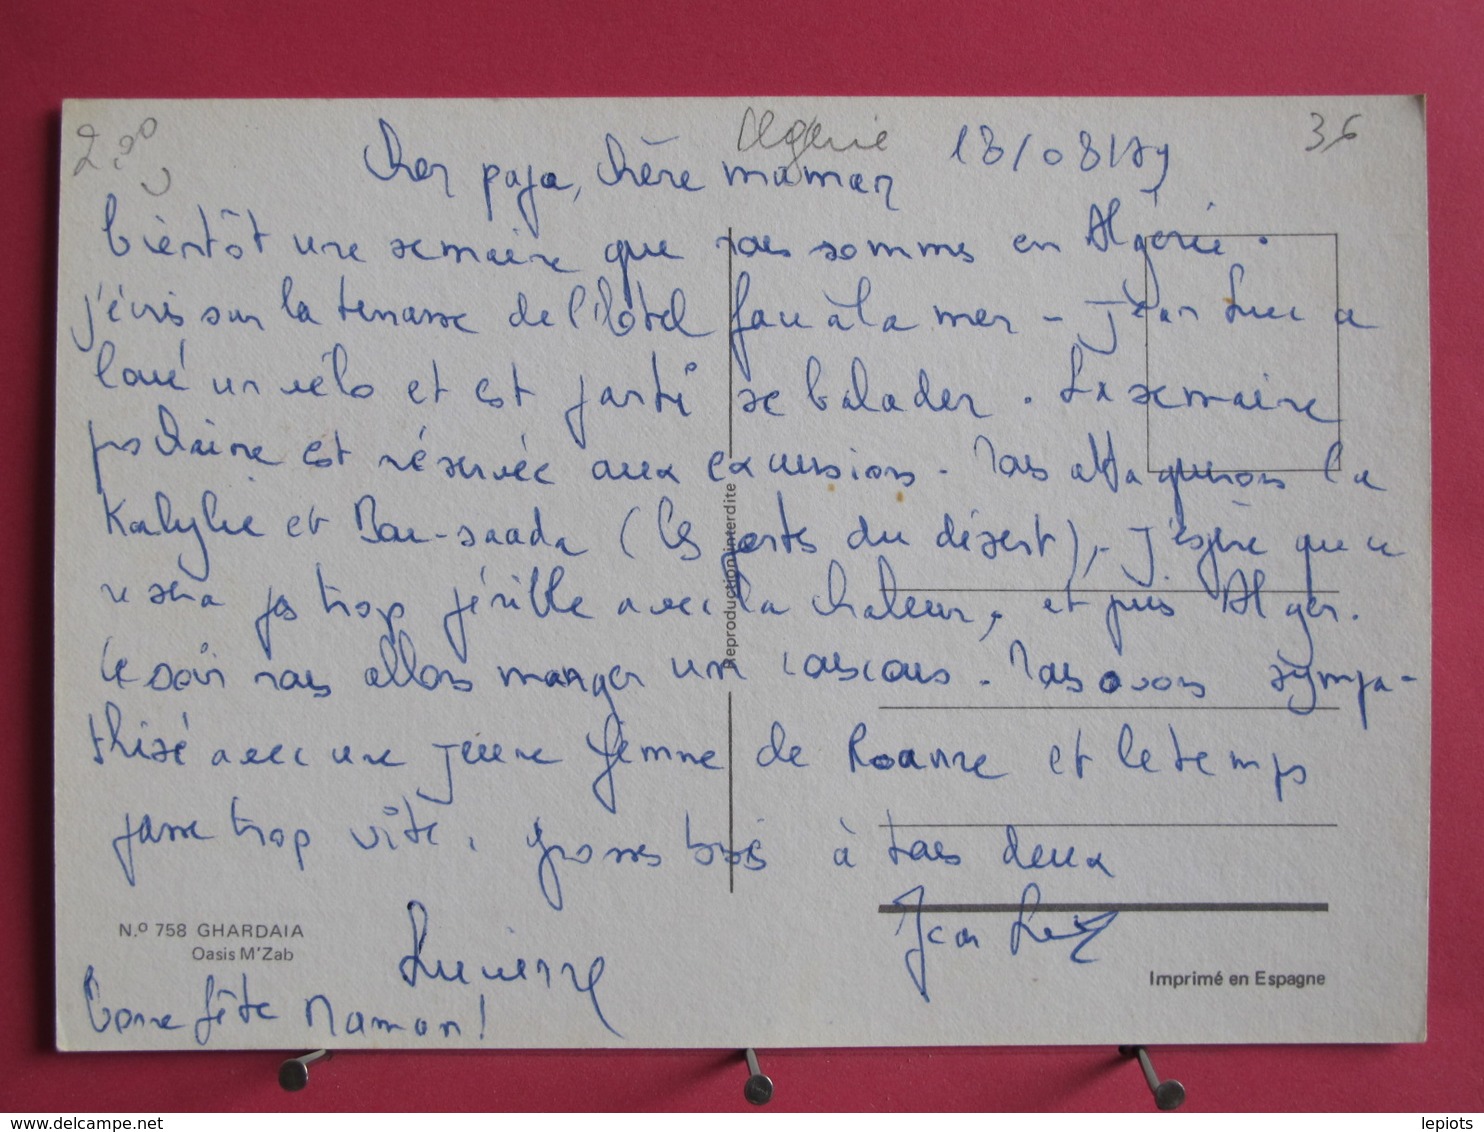 2.00
Algérie
36
13/08/79
Cher papa, chère maman
bientôt une semaine que nous sommes en Algérie.
j'écris sur la terrasse de l'hôtel face à la mer - Jean Luc a
loué un vélo et est parti se balader. La semaine
prochaine est réservée aux excursions. Nous attaquerons la
Kabylie et Bou-saada (les portes du désert), - J'espère que ce
ne sera pas trop pénible avec la chaleur, et puis Alger.
Ce soir nous allons manger un couscous. Nous avons sympa-
thisé avec une jeune femme de Roanne et le temps
passe trop vite. grosses bises à tous deux
Jean Luc
Lucienne
Bonne fête Maman!
N.º 758 GHARDAIA
Oasis M'Zab
Reproduction interdite
Imprimé en Espagne
delcampe.net
lepiots